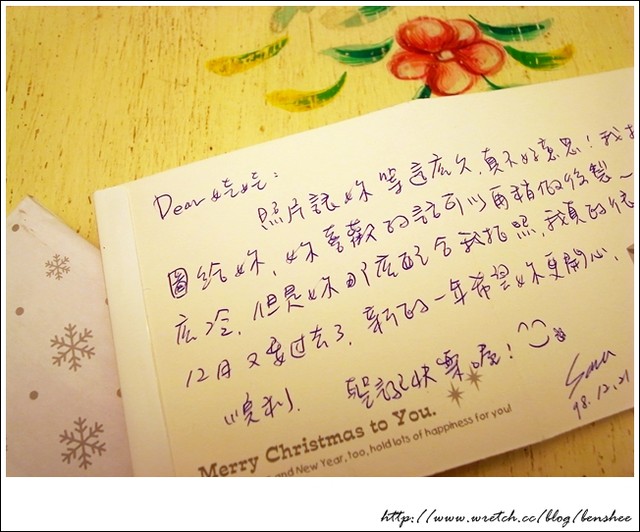 Dear 娃娃:
照片讓妳等這麼久,真不好意思!我
圖給妳,妳喜歡的話可以再稍做後製~
底冷,但是妳那麼配合我拍照,我真的很
12月又要過去了,新的一年希望妳更開心,
順利. 聖誕快樂喔!
Sara
98.12.21
Merry Christmas to You.
and New Year, too, hold lots of happiness for you!
http://www.wretch.cc/blog/benshee